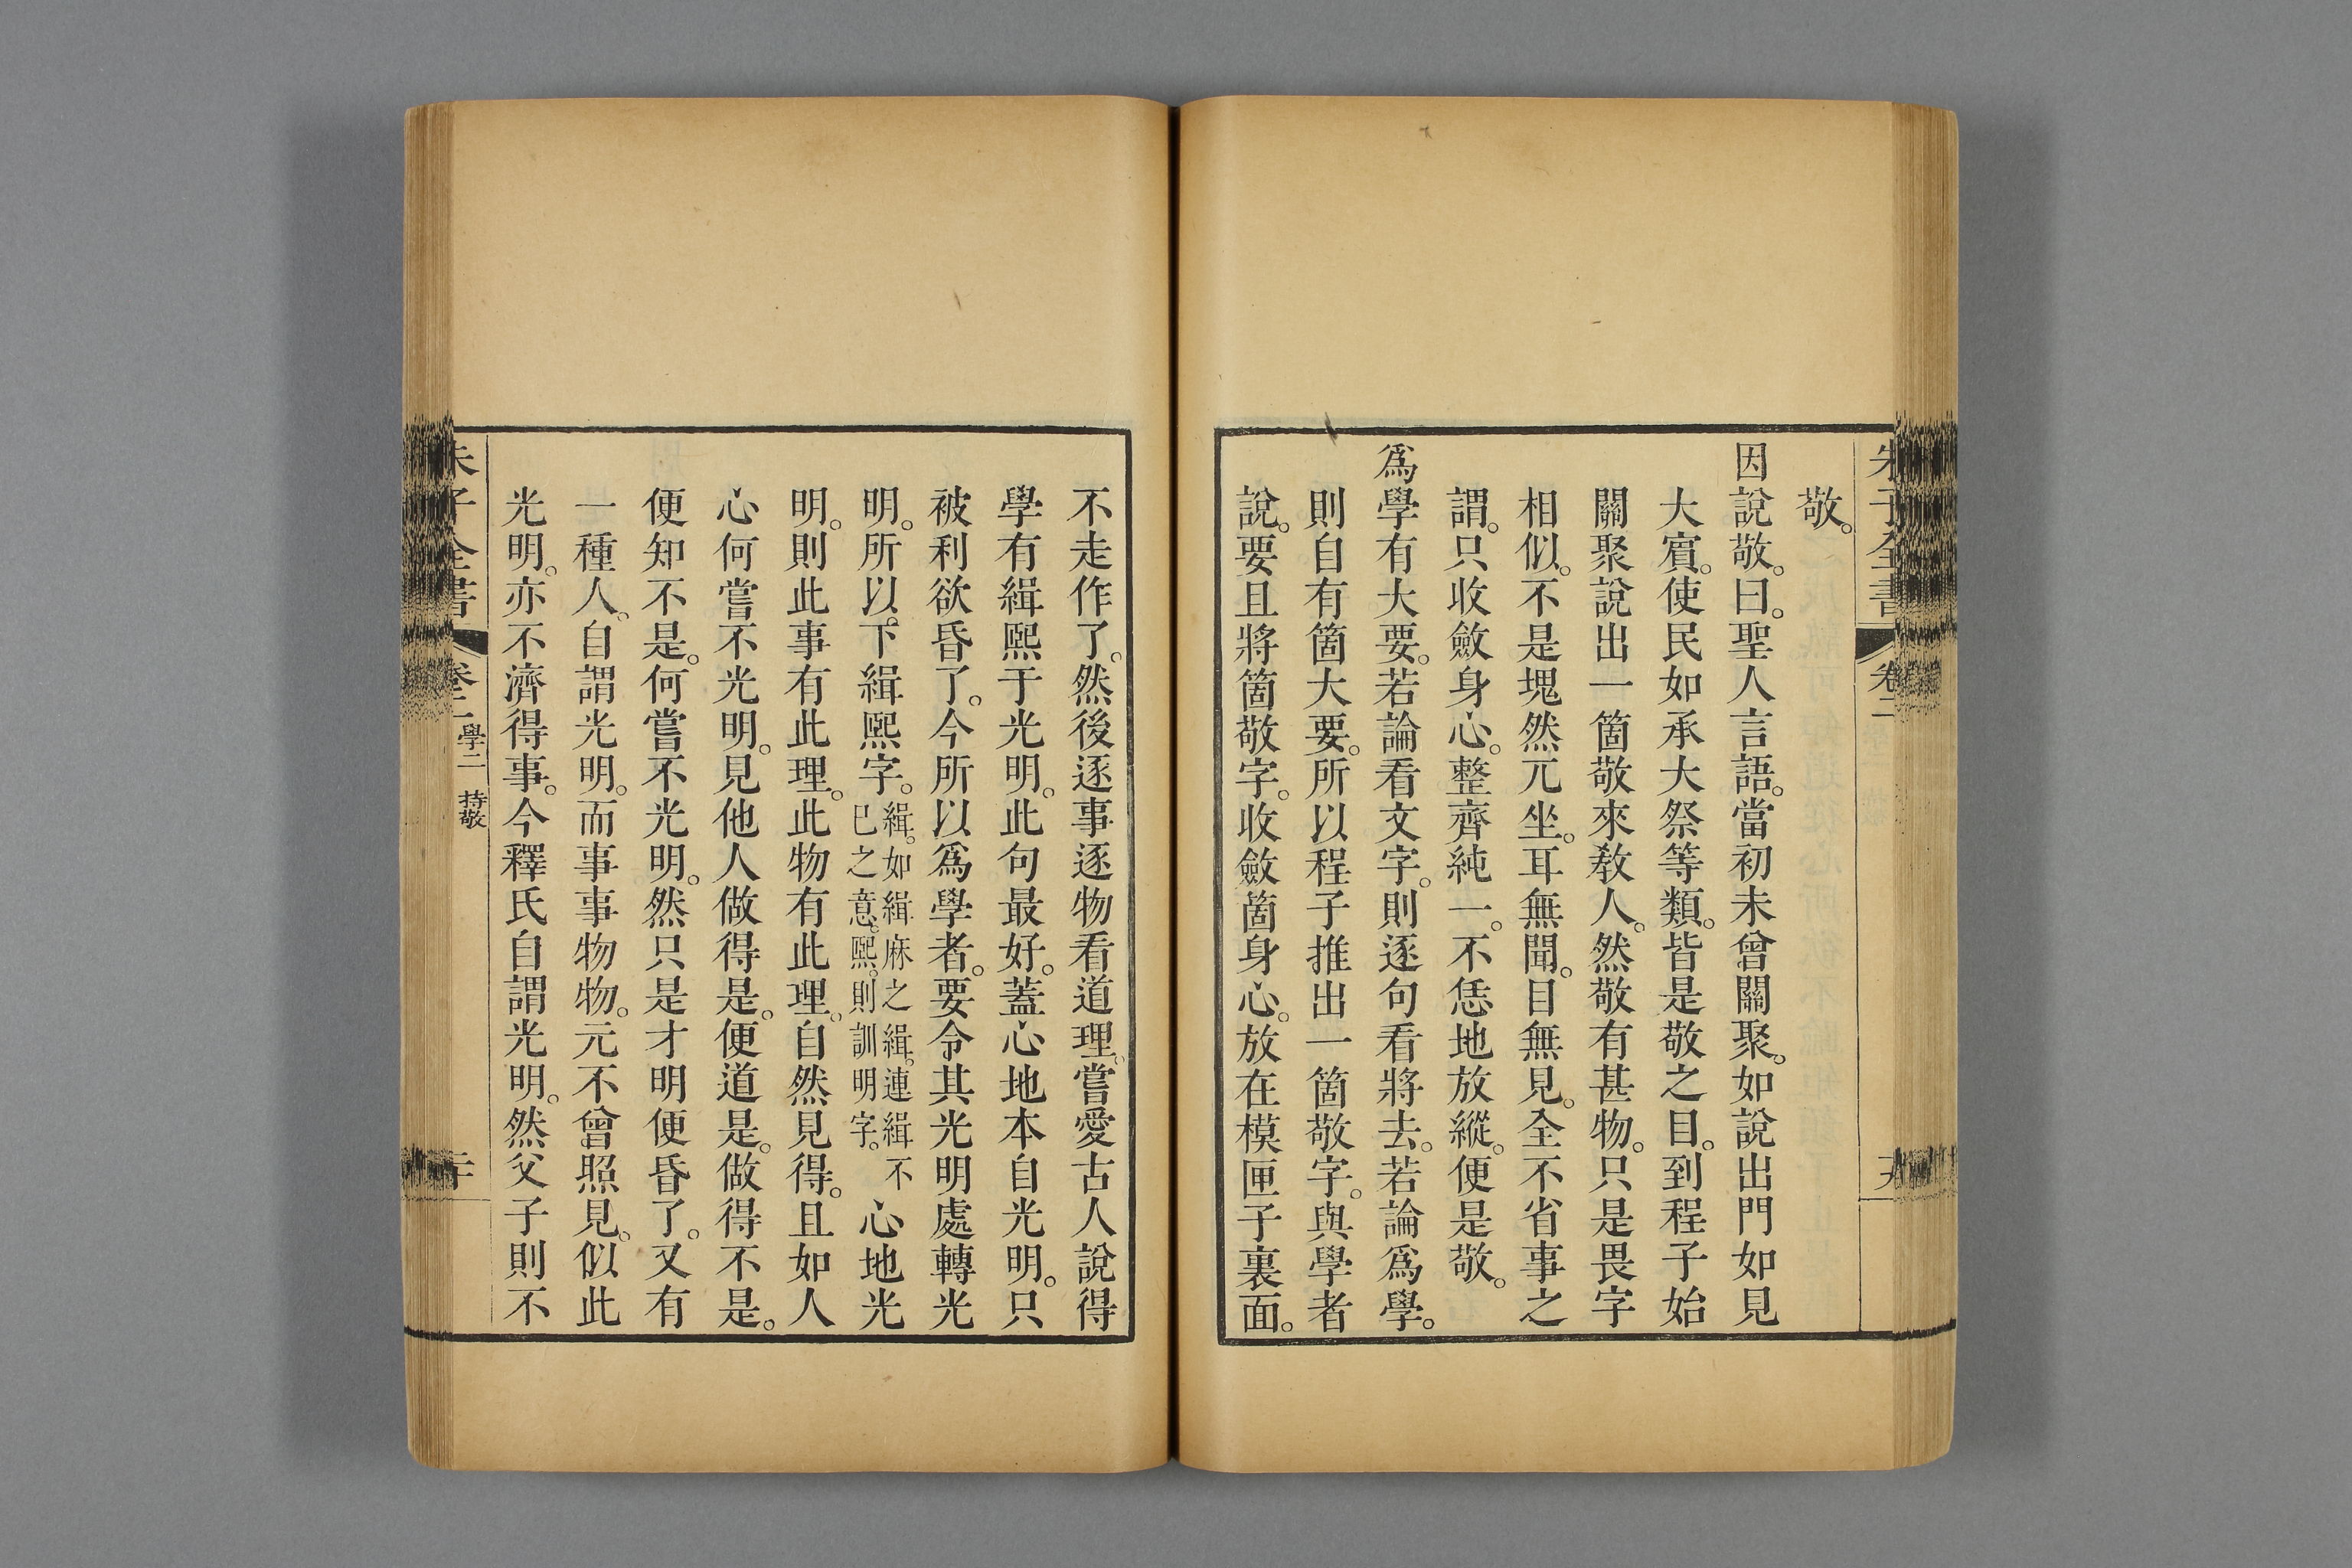 朱子全書 卷二
敬。
因說敬。曰。聖人言語。當初未曾關聚。如說出門如見
大賓。使民如承大祭等類。皆是敬之目。到程子始
關聚說出一箇敬來敎人。然敬有甚物。只是畏字
相似。不是塊然兀坐。耳無聞。目無見。全不省事之
謂。只收斂身心。整齊純一。不恁地放縱。便是敬。
爲學有大要。若論看文字。則逐句看將去。若論爲學。
則自有箇大要。所以程子推出一箇敬字。與學者
說。要且將箇敬字。收斂箇身心。放在模匣子裏面。
不走作了。然後逐事逐物看道理。嘗愛古人說得
學有緝熙于光明。此句最好。蓋心地本自光明。只
被利欲昏了。今所以爲學者。要令其光明處轉光
明。所以下緝熙字。緝。如緝麻之緝。連緝不已之意。熙。則訓明字。心地光
明。則此事有此理。此物有此理。自然見得。且如人
心何嘗不光明。見他人做得是。便道是。做得不是。
便知不是。何嘗不光明。然只是才明便昏了。又有
一種人。自謂光明。而事事物物。元不曾照見。似此
光明。亦不濟得事。今釋氏自謂光明。然父子則不
朱子全書 卷二 學二 持敬